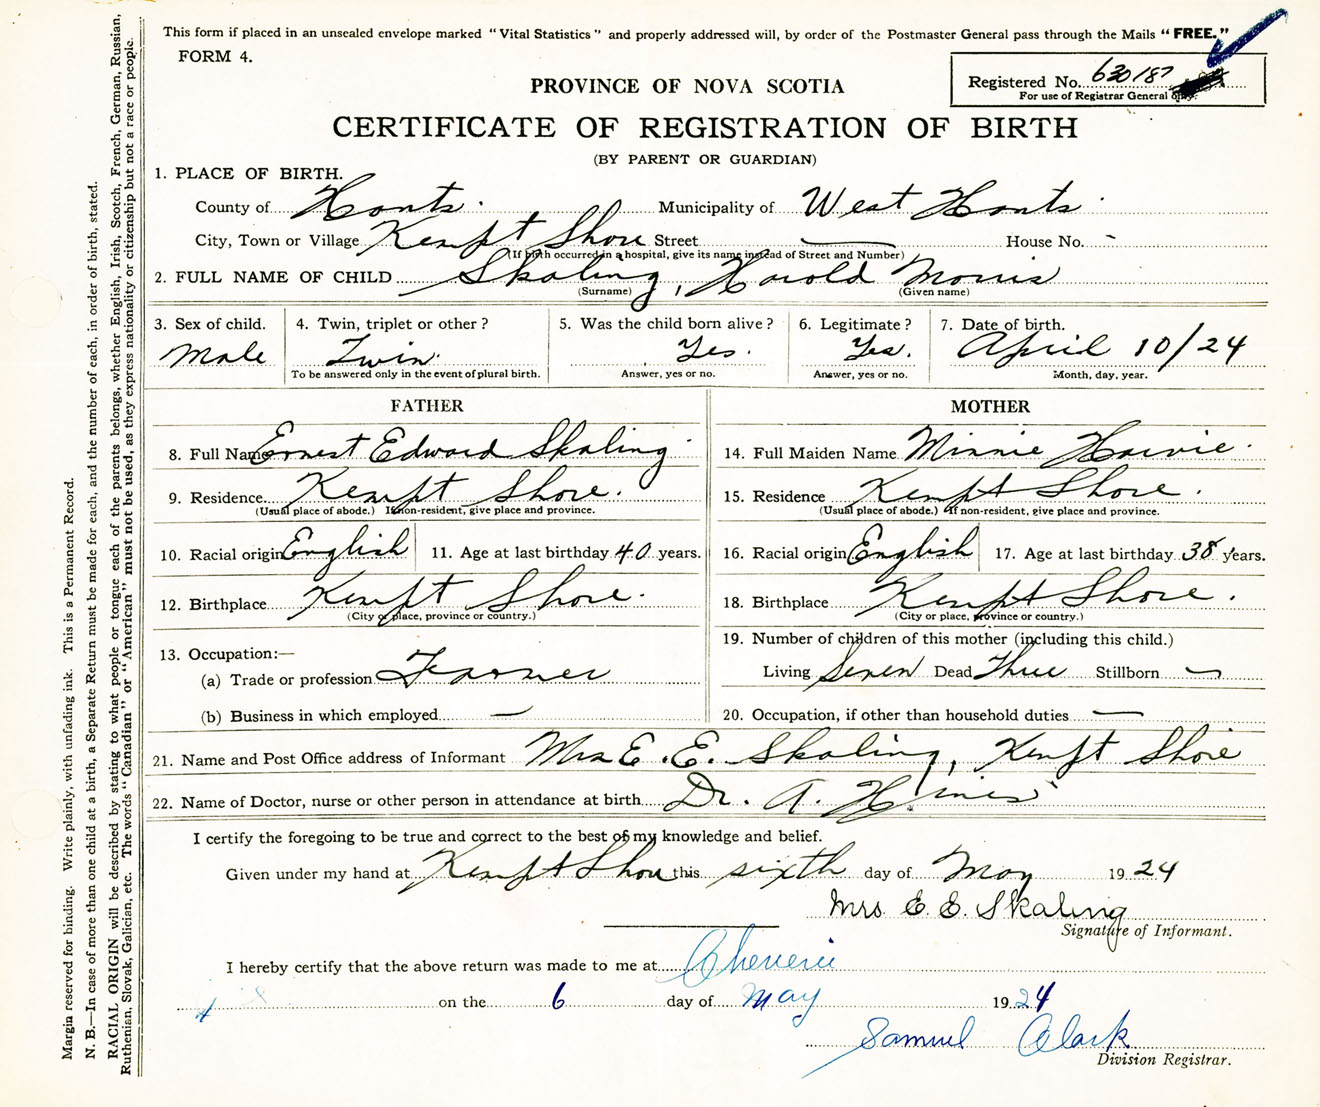 This form if placed in an unsealed envelope marked "Vital Statistics" and properly addressed will, by order of the Postmaster General pass through the Mails "FREE."
FORM 4.
Registered No. 630187
For use of Registrar General only.
PROVINCE OF NOVA SCOTIA
CERTIFICATE OF REGISTRATION OF BIRTH
(BY PARENT OR GUARDIAN)
1. PLACE OF BIRTH.
County of Hants. Municipality of West Hants.
City, Town or Village Kempt Shore Street — House No. -
(If birth occurred in a hospital, give its name instead of Street and Number)
2. FULL NAME OF CHILD Skaling, Harold Morris
(Surname) (Given name)
3. Sex of child. 4. Twin, triplet or other? 5. Was the child born alive? 6. Legitimate? 7. Date of birth.
Male Twin. Yes. Yes. April 10/24
To be answered only in the event of plural birth. Answer, yes or no. Answer, yes or no. Month, day, year.
FATHER MOTHER
8. Full Name Ernest Edward Skaling 14. Full Maiden Name Minnie Harvie.
9. Residence Kempt Shore. 15. Residence Kempt Shore.
(Usual place of abode.) If non-resident, give place and province. (Usual place of abode.) If non-resident, give place and province.
10. Racial origin English 11. Age at last birthday 40 years. 16. Racial origin English 17. Age at last birthday 38 years.
12. Birthplace Kempt Shore. 18. Birthplace Kempt Shore.
(City or place, province or country.) (City or place, province or country.)
13. Occupation:— 19. Number of children of this mother (including this child.)
(a) Trade or profession Farmer Living Seven Dead Three Stillborn —
(b) Business in which employed — 20. Occupation, if other than household duties —
21. Name and Post Office address of Informant Mrs E. E. Skaling, Kempt Shore
22. Name of Doctor, nurse or other person in attendance at birth Dr. A. Hines
I certify the foregoing to be true and correct to the best of my knowledge and belief.
Given under my hand at Kempt Shore this sixth day of May 1924
Mrs E. E. Skaling
Signature of Informant.
I hereby certify that the above return was made to me at Cheverie
on the 6 day of May 1924
Samuel Clark
Division Registrar.
Margin reserved for binding. Write plainly, with unfading ink. This is a Permanent Record.
N. B.—In case of more than one child at a birth, a Separate Return must be made for each, and the number of each, in order of birth, stated.
RACIAL ORIGIN will be described by stating to what people or tongue each of the parents belongs, whether English, Irish, Scotch, French, German, Russian,
Ruthenian, Slovak, Galician, etc. The words "Canadian" or "American" must not be used, as they express nationality or citizenship but not a race or people.